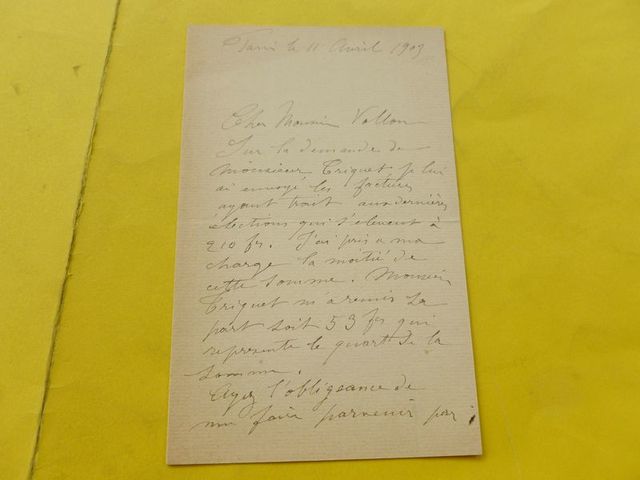 Paris le 11 Avril 1909
Cher Monsieur Vallon
Sur la demande de
Monsieur Criquet je lui
ai envoyé les factures
ayant trait aux dernières
élections qui s'élèvent à
210 frs. J'ai pris a ma
charge la moitié de
cette somme. Monsieur
Criquet m'a remis sa
part soit 53 frs qui
represente le quart de la
somme.
Ayez l'obligeance de
me faire parvenir par